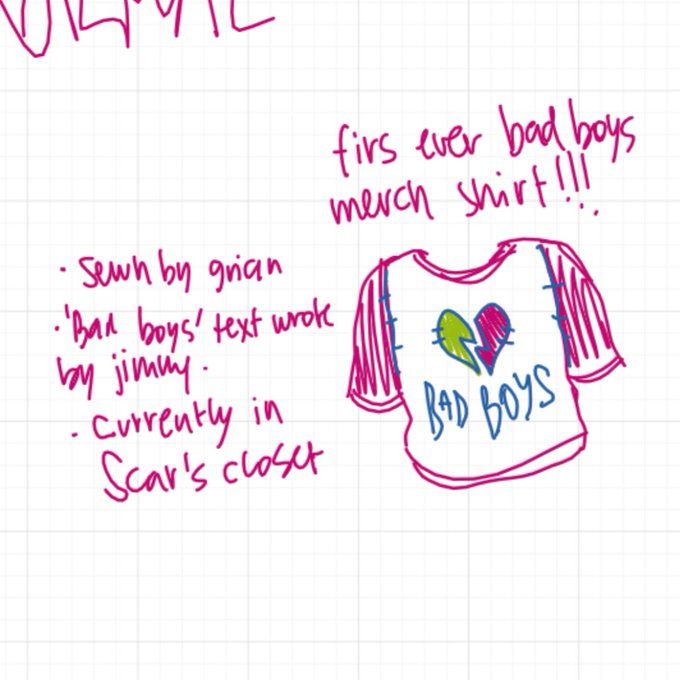 firs ever bad boys
merch shirt!!!
· Sewn by grian
· 'Bad boys' text wrote
by jimmy.
· Currently in
Scar's closet
BAD BOYS